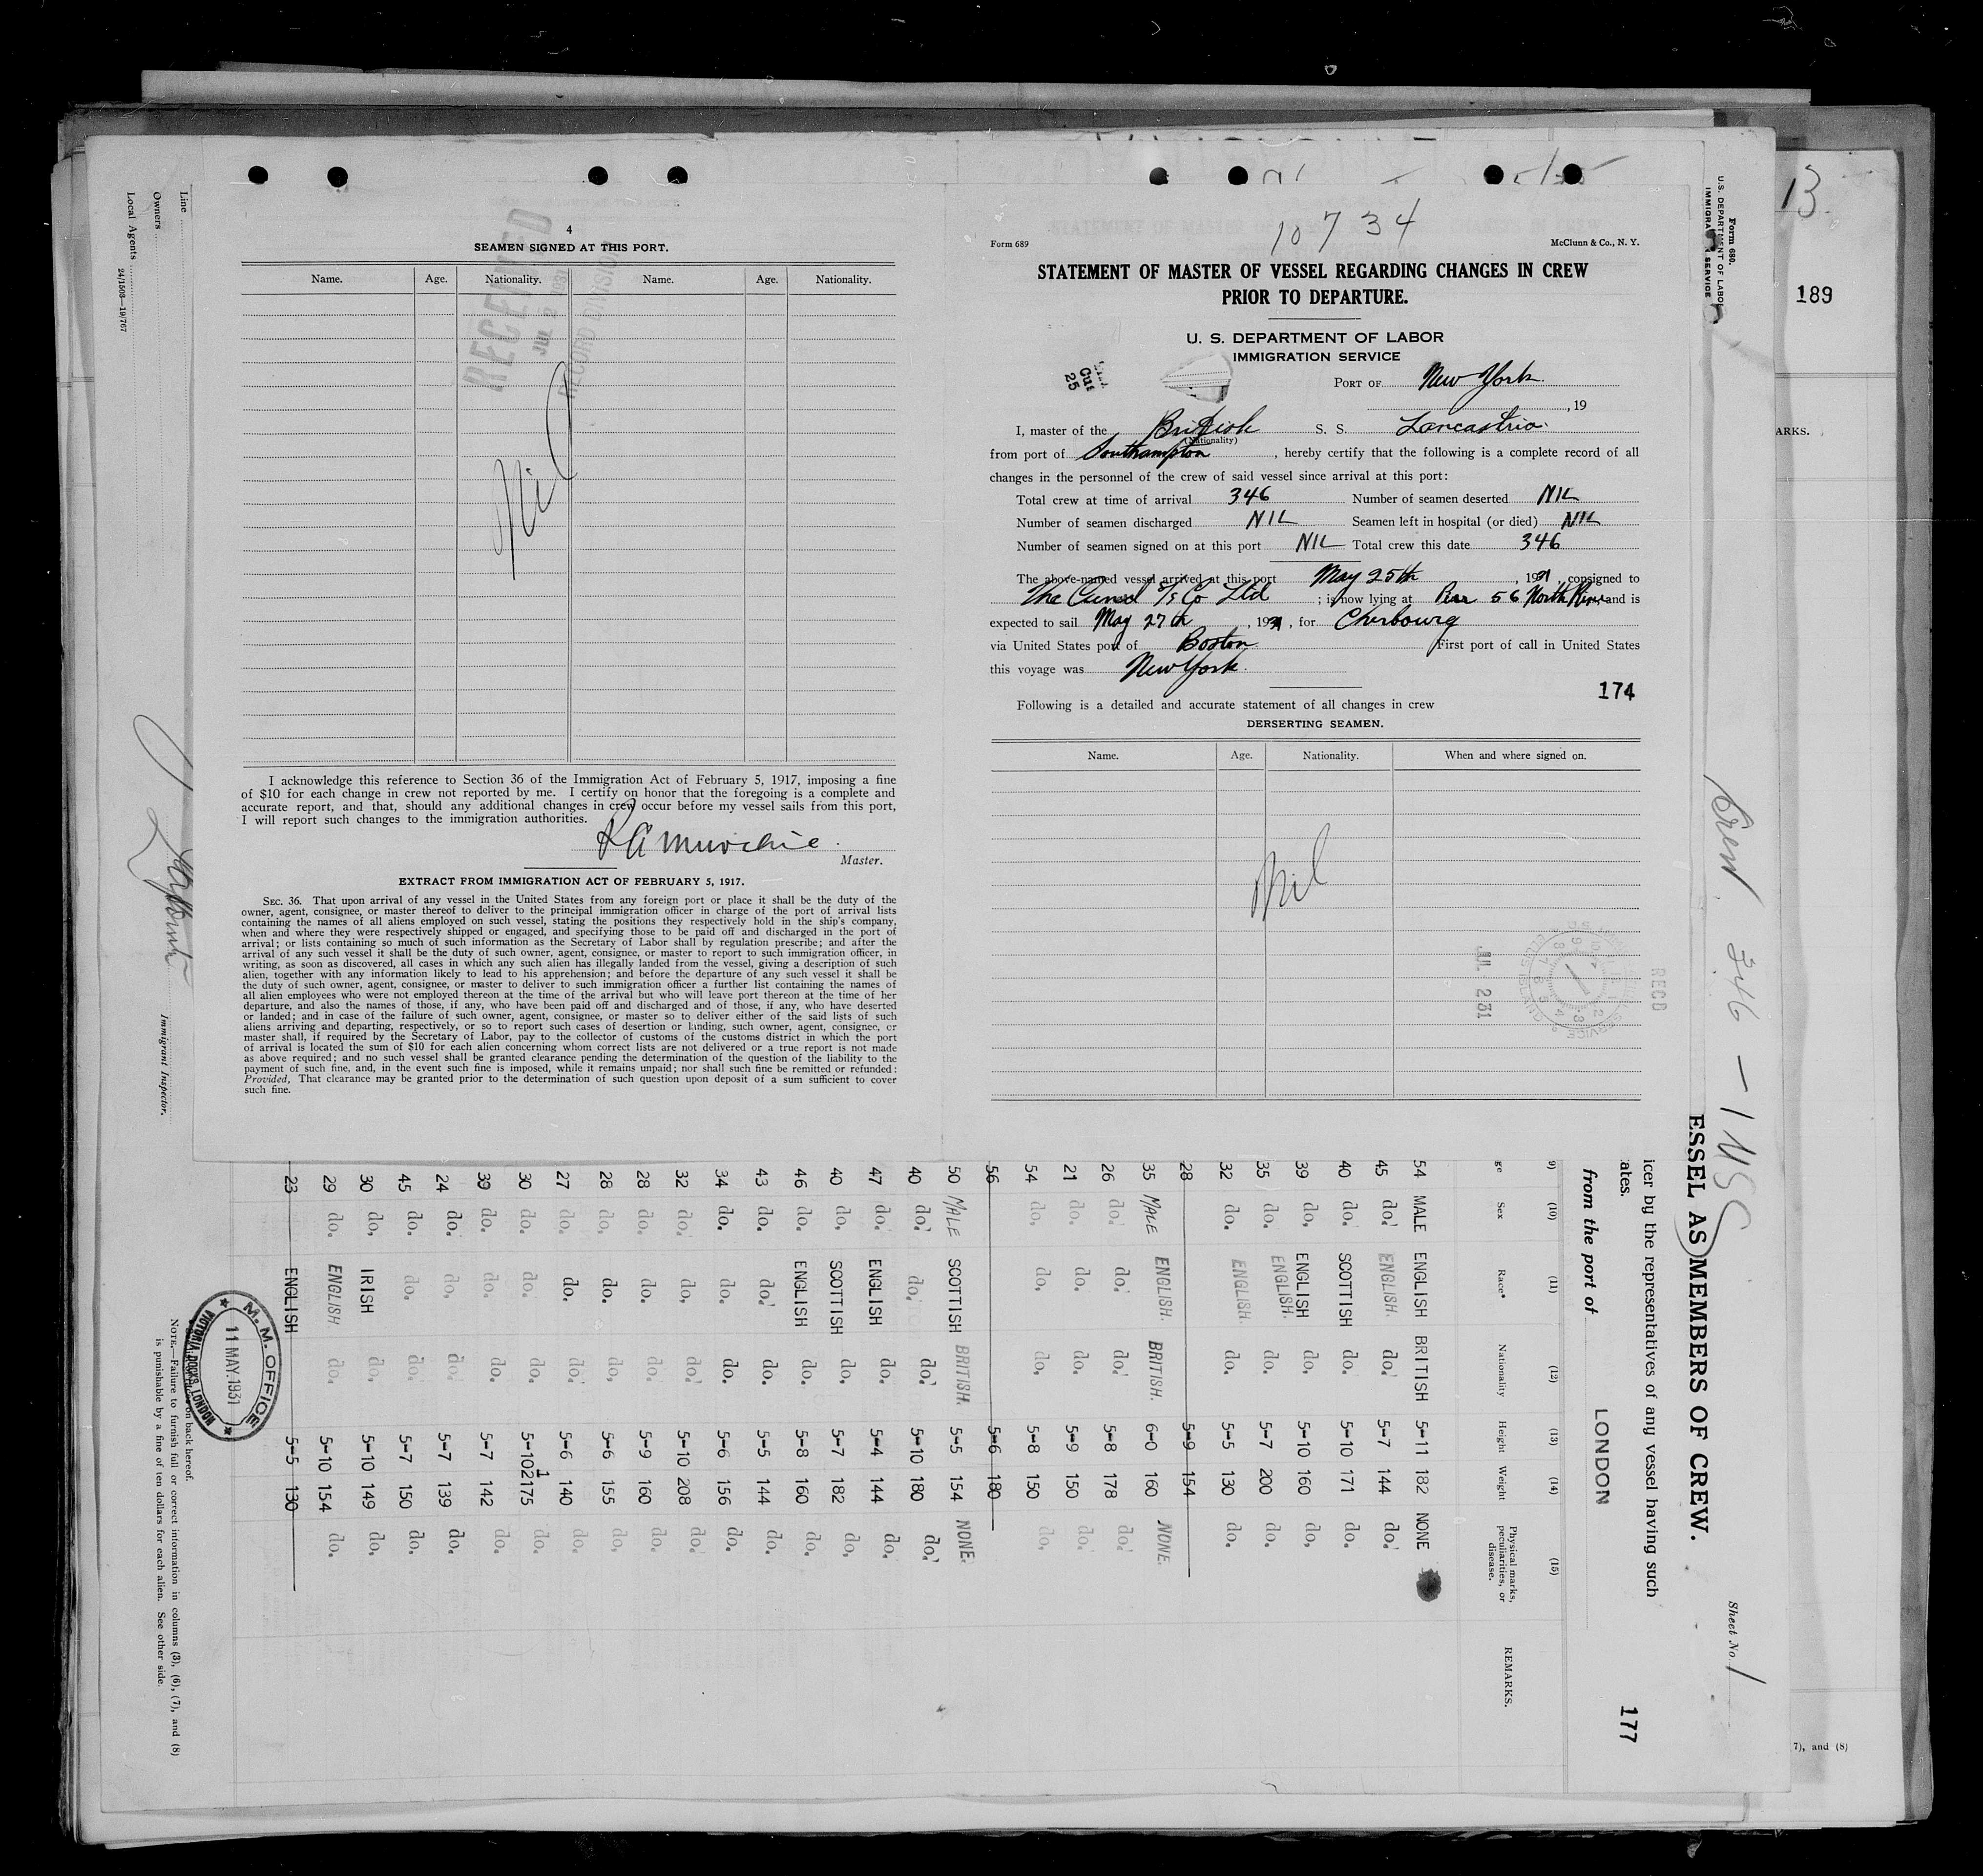 4
SEAMEN SIGNED AT THIS PORT.
Name. Age. Nationality. Name. Age. Nationality.
RECEIVED
RECORD DIVISION
Nil
I acknowledge this reference to Section 36 of the Immigration Act of February 5, 1917, imposing a fine
of $10 for each change in crew not reported by me. I certify on honor that the foregoing is a complete and
accurate report, and that, should any additional changes in crew occur before my vessel sails from this port,
I will report such changes to the immigration authorities.
R A Murchie
Master.
EXTRACT FROM IMMIGRATION ACT OF FEBRUARY 5, 1917.
SEC. 36. That upon arrival of any vessel in the United States from any foreign port or place it shall be the duty of the
owner, agent, consignee, or master thereof to deliver to the principal immigration officer in charge of the port of arrival lists
containing the names of all aliens employed on such vessel, stating the positions they respectively hold in the ship's company,
when and where they were respectively shipped or engaged, and specifying those to be paid off and discharged in the port of
arrival; or lists containing so much of such information as the Secretary of Labor shall by regulation prescribe; and after the
arrival of any such vessel it shall be the duty of such owner, agent, consignee, or master to report to such immigration officer, in
writing, as soon as discovered, all cases in which any such alien has illegally landed from the vessel, giving a description of such
alien, together with any information likely to lead to his apprehension; and before the departure of any such vessel it shall be
the duty of such owner, agent, consignee, or master to deliver to such immigration officer a further list containing the names of
all alien employees who were not employed thereon at the time of the arrival but who will leave port thereon at the time of her
departure, and also the names of those, if any, who have been paid off and discharged and of those, if any, who have deserted
or landed; and in case of the failure of such owner, agent, consignee, or master so to deliver either of the said lists of such
aliens arriving and departing, respectively, or so to report such cases of desertion or landing, such owner, agent, consignee, or
master shall, if required by the Secretary of Labor, pay to the collector of customs of the customs district in which the port
of arrival is located the sum of $10 for each alien concerning whom correct lists are not delivered or a true report is not made
as above required; and no such vessel shall be granted clearance pending the determination of the question of the liability to the
payment of such fine, and, in the event such fine is imposed, while it remains unpaid; nor shall such fine be remitted or refunded:
Provided, That clearance may be granted prior to the determination of such question upon deposit of a sum sufficient to cover
such fine.
10734
Form 689 McClunn & Co., N. Y.
STATEMENT OF MASTER OF VESSEL REGARDING CHANGES IN CREW
PRIOR TO DEPARTURE.
U. S. DEPARTMENT OF LABOR
IMMIGRATION SERVICE
PORT OF New York
, 19
I, master of the British S. S. Lancastria
(Nationality)
from port of Southampton, hereby certify that the following is a complete record of all
changes in the personnel of the crew of said vessel since arrival at this port:
Total crew at time of arrival 346 Number of seamen deserted NIL
Number of seamen discharged NIL Seamen left in hospital (or died) NIL
Number of seamen signed on at this port NIL Total crew this date 346
The above-named vessel arrived at this port May 25th, 1931, consigned to
The Cunard S/S Co Ltd; is now lying at Pier 56 North River and is
expected to sail May 27th, 1931, for Cherbourg
via United States port of Boston First port of call in United States
this voyage was New York.
174
Following is a detailed and accurate statement of all changes in crew
DERSERTING SEAMEN.
Name. Age. Nationality. When and where signed on.
Nil
JUL 2 31
RECD
Line
Owners
Local Agents
24/1503—19/767
Immigrant Inspector.
Form 680.
U. S. DEPARTMENT OF LABOR
IMMIGRATION SERVICE
13
189
ARKS.
7), and (8)
Crew 346 - 1 USC
Sheet No. 1
177
ESSEL AS MEMBERS OF CREW.
icer by the representatives of any vessel having such
ates.
from the port of LONDON
9) (10) (11) (12) (13) (14) (15)
ge Sex Race* Nationality Height Weight Physical marks, peculiarities, or disease. REMARKS.
54 MALE ENGLISH BRITISH 5-11 182 NONE
45 do. ENGLISH. do. 5-7 144 do.
40 do. SCOTTISH do. 5-10 171 do.
39 do. ENGLISH do. 5-10 160 do.
35 do. ENGLISH. do. 5-7 200 do.
32 do. ENGLISH. do. 5-5 130 do.
28 5-9 154
35 MALE ENGLISH. BRITISH. 6-0 160 NONE.
26 do. do. do. 5-8 178 do.
21 do. do. do. 5-9 150 do.
54 do. do. do. 5-8 150 do.
56 5-6 180
50 MALE SCOTTISH BRITISH. 5-5 154 NONE.
40 do. do. do. 5-10 180 do.
47 do. ENGLISH do. 5-4 144 do.
40 do. SCOTTISH do. 5-7 182 do.
46 do. ENGLISH do. 5-8 160 do.
43 do. do. do. 5-5 144 do.
34 do. do. do. 5-6 156 do.
32 do. do. do. 5-10 208 do.
28 do. do. do. 5-9 160 do.
28 do. do. do. 5-6 155 do.
27 do. do. do. 5-6 140 do.
30 do. do. do. 5-10½ 175 do.
39 do. do. do. 5-7 142 do.
24 do. do. do. 5-7 139 do.
45 do. do. do. 5-7 150 do.
30 do. IRISH do. 5-10 149 do.
29 do. ENGLISH do. 5-10 154 do.
23 ENGLISH 5-5 130
M. M. OFFICE
11 MAY.1931
VICTORIA DOCKS, LONDON
on back hereof.
NOTE.—Failure to furnish full or correct information in columns (3), (6), (7), and (8)
is punishable by a fine of ten dollars for each alien. See other side.